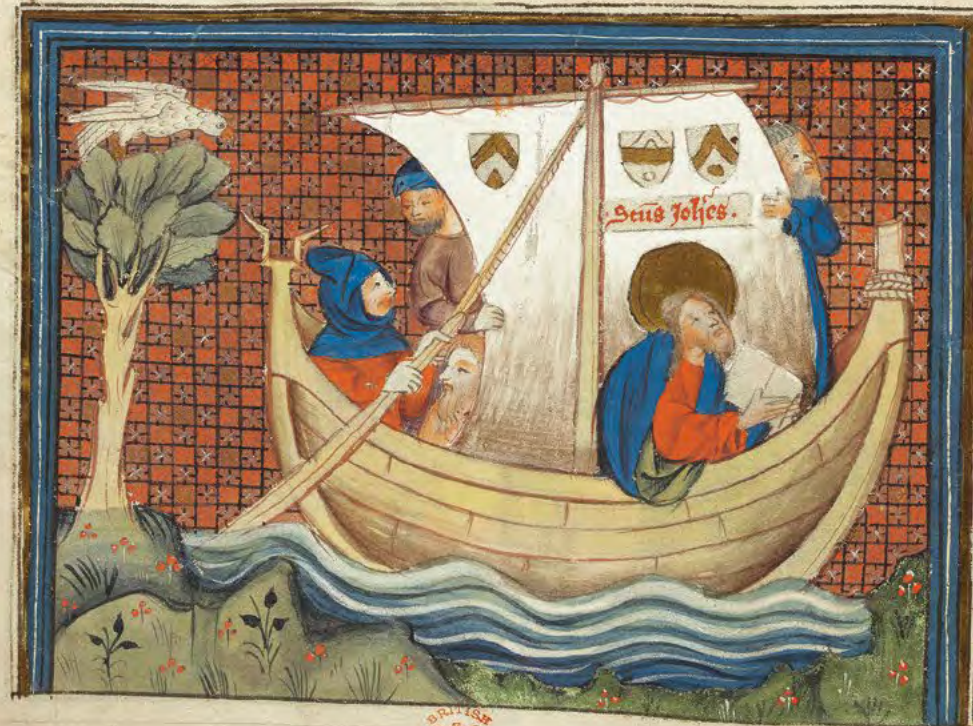 Sc̅us Joh̅es.
BRITISH